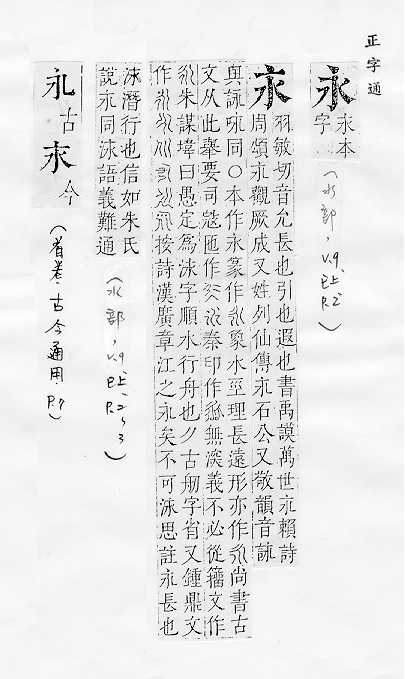 正字通
永 永本
字
(水部,v.9,巳上,P.2)
永 羽敏切音允長也引也遐也書禹謨萬世永賴詩
周頌永觀厥成又姓列仙傳永石公又敬韻音詠
與詠咏同○本作永篆作象水巠理長遠形亦作尚書古
文从此舉要司寇匜作秦印作無深義不必從籒文作
朱謀㙔曰愚定爲泳字順水行舟也夕古舠字省又鍾鼎文
作按詩漢廣章江之永矣不可泳思註永長也
泳潛行也信如朱氏
說永同泳語義難通
(水部,v.9,巳上,P.2~3)
永古永今
(首卷·古今通用P.7)